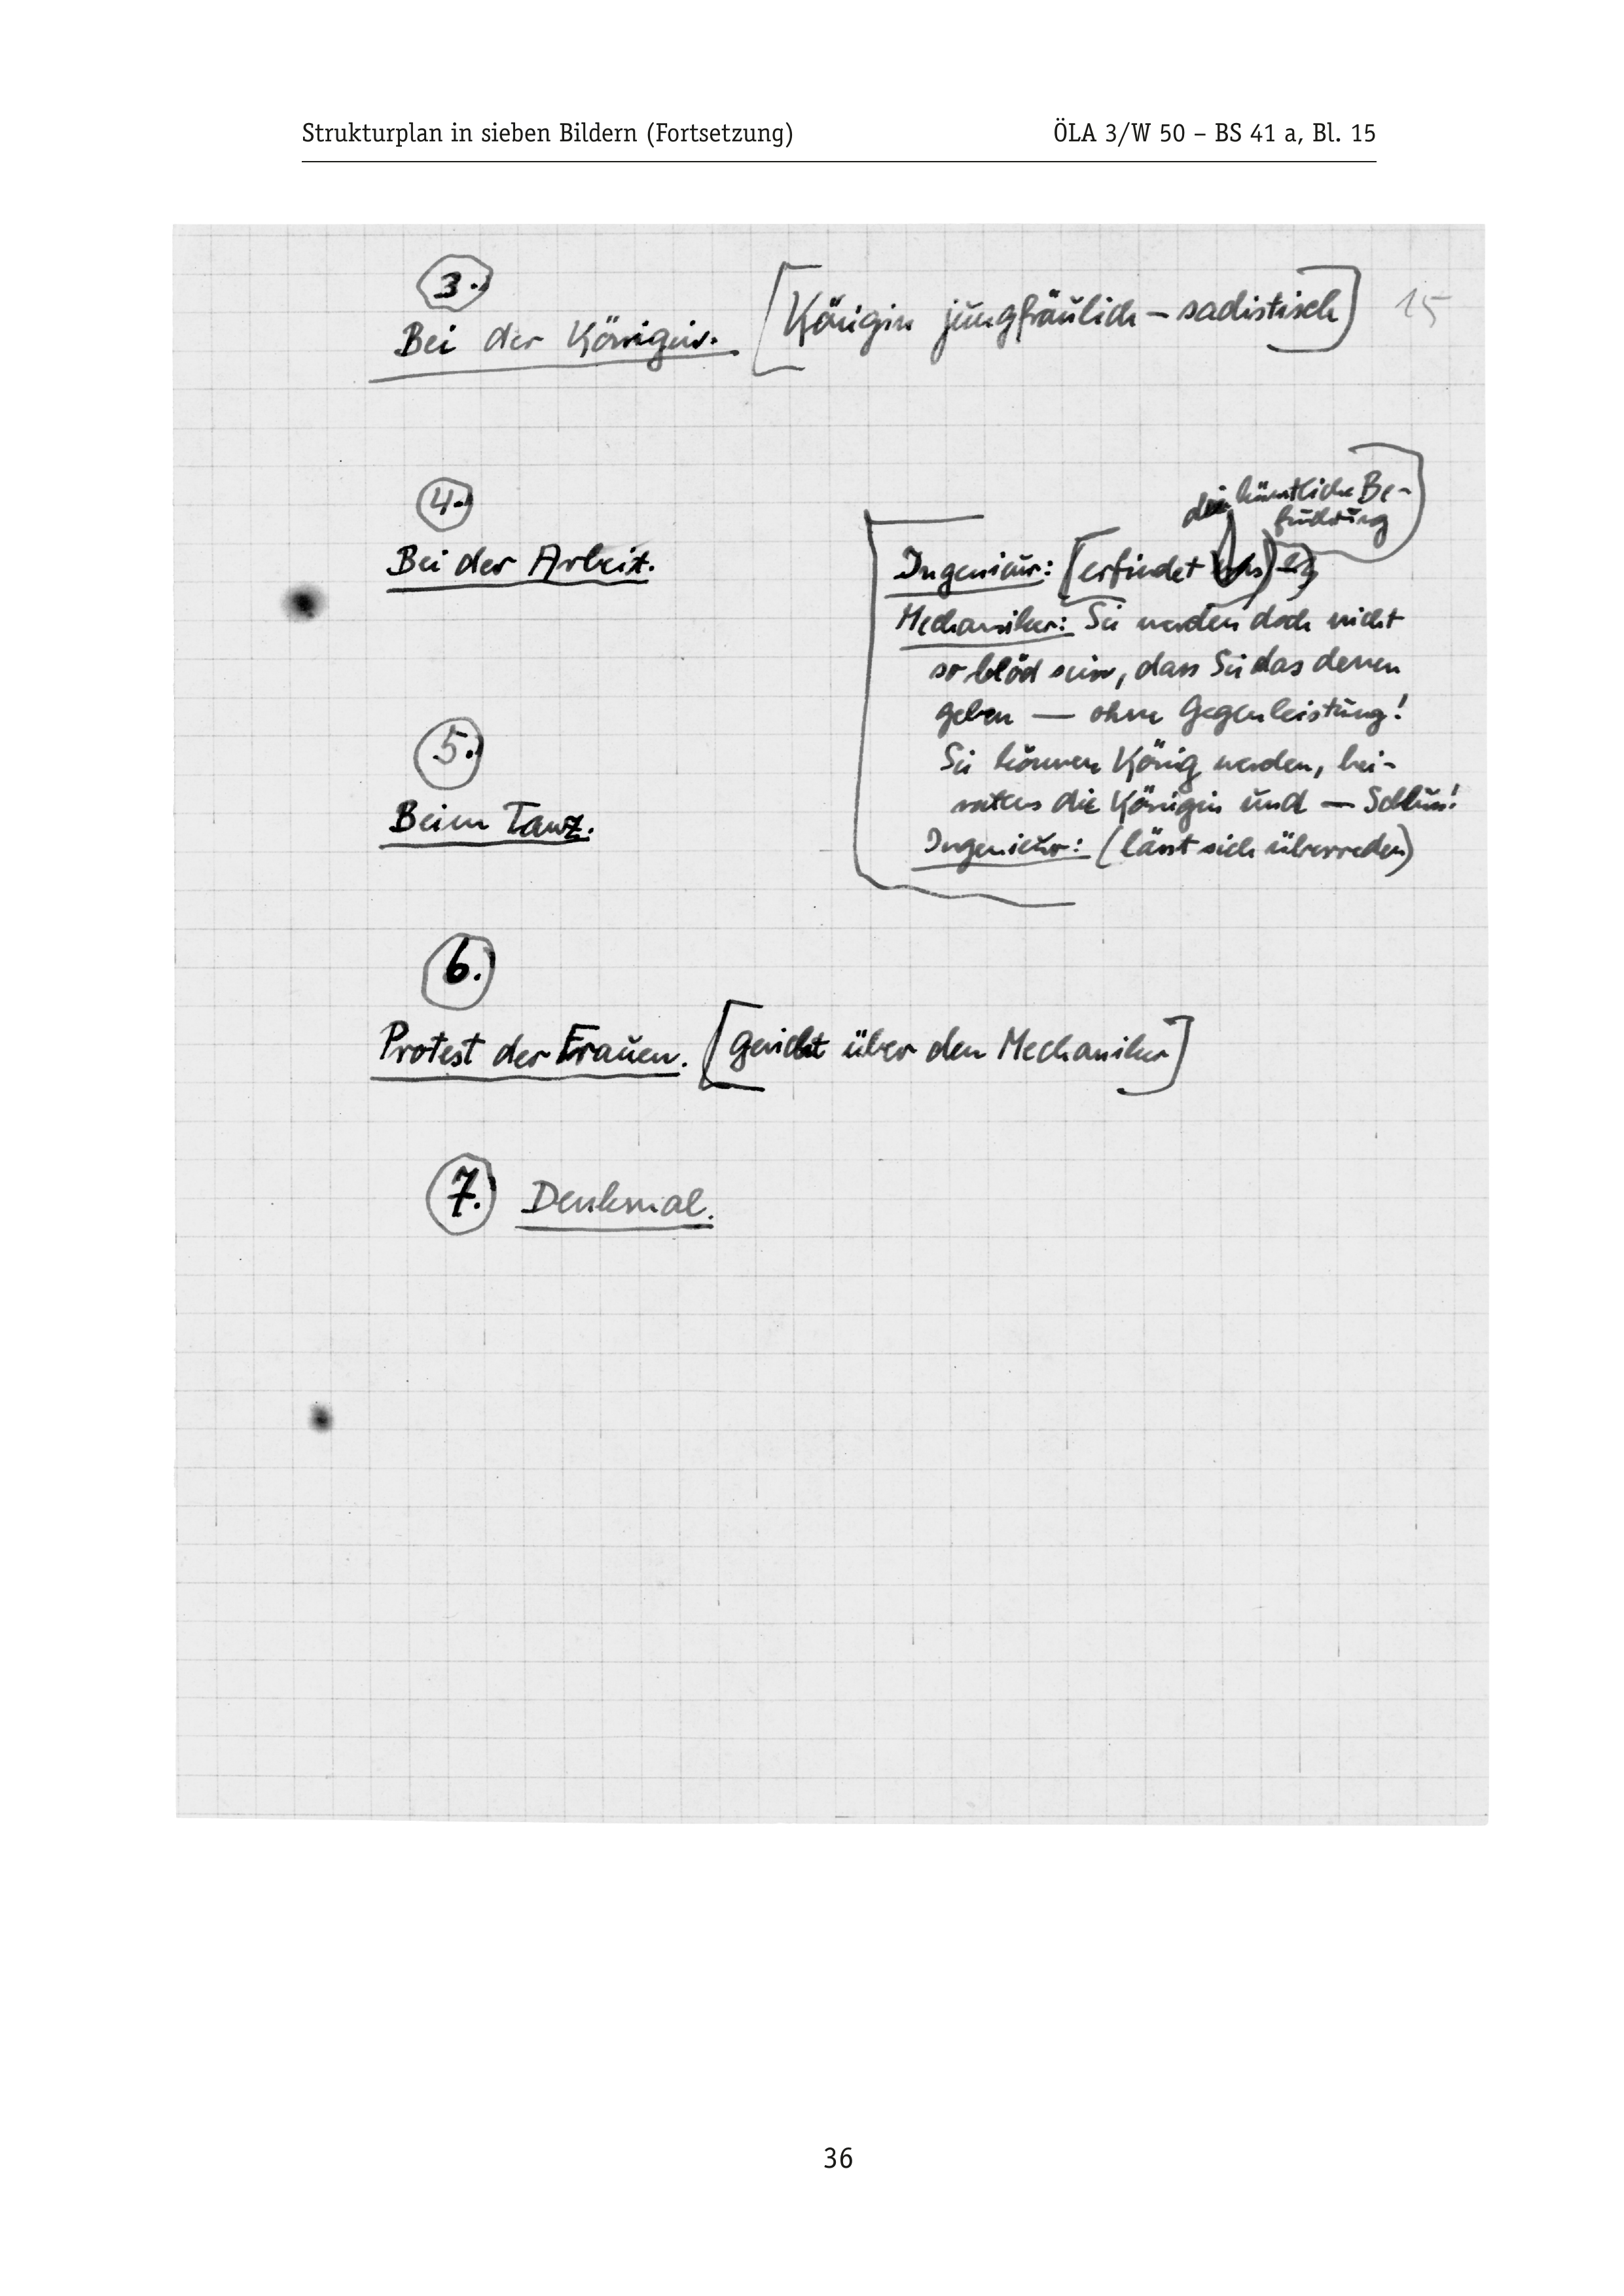 Strukturplan in sieben Bildern (Fortsetzung) ÖLA 3/W 50 – BS 41 a, Bl. 15
3.
Bei der Königin. [Königin jungfräulich – sadistisch] 15
4.
Bei der Arbeit.
die künstliche Be-
fruchtung]
[Ingenieur: [erfindet
Mechaniker: Sie werden doch nicht
so blöd sein, dass Sie das denen
geben — ohne Gegenleistung!
Sie können König werden, hei-
raten die Königin und — Schluss!
Ingenieur: (lässt sich überreden)
5.
Beim Tanz.
6.
Protest der Frauen. [Gericht über den Mechaniker]
7. Denkmal.
36